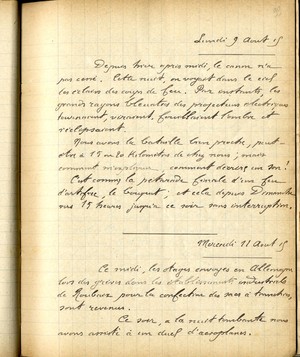 Lundi 9 Août 15
Depuis hier après midi, le canon n'a
pas cessé. Cette nuit, on voyait dans le ciel
les éclairs des coups de feu. Par instants, les
grands rayons bleuâtres des projecteurs électriques
tournaient, viraient, fouillaient l'ombre et
s'éclipsaient.
Nous avons la bataille proche, peut-
être à 15 ou 20 kilomètres de chez nous ; mais
comment comment derrière un
C'est comme la pétarade finale d'un feu
d'artifice, le bouquet, et cela depuis Dimanche
vers 15 heures jusqu'à ce soir sans interruption.
Mercredi 11 Août 15
Ce midi, les otages envoyés en Allemagne
lors des grèves dans les établissements industriels
de Roubaix pour la confection des sacs à tranchées,
sont revenus.
Ce soir, à la nuit tombante nous
avons assisté à un duel d'aéroplanes.